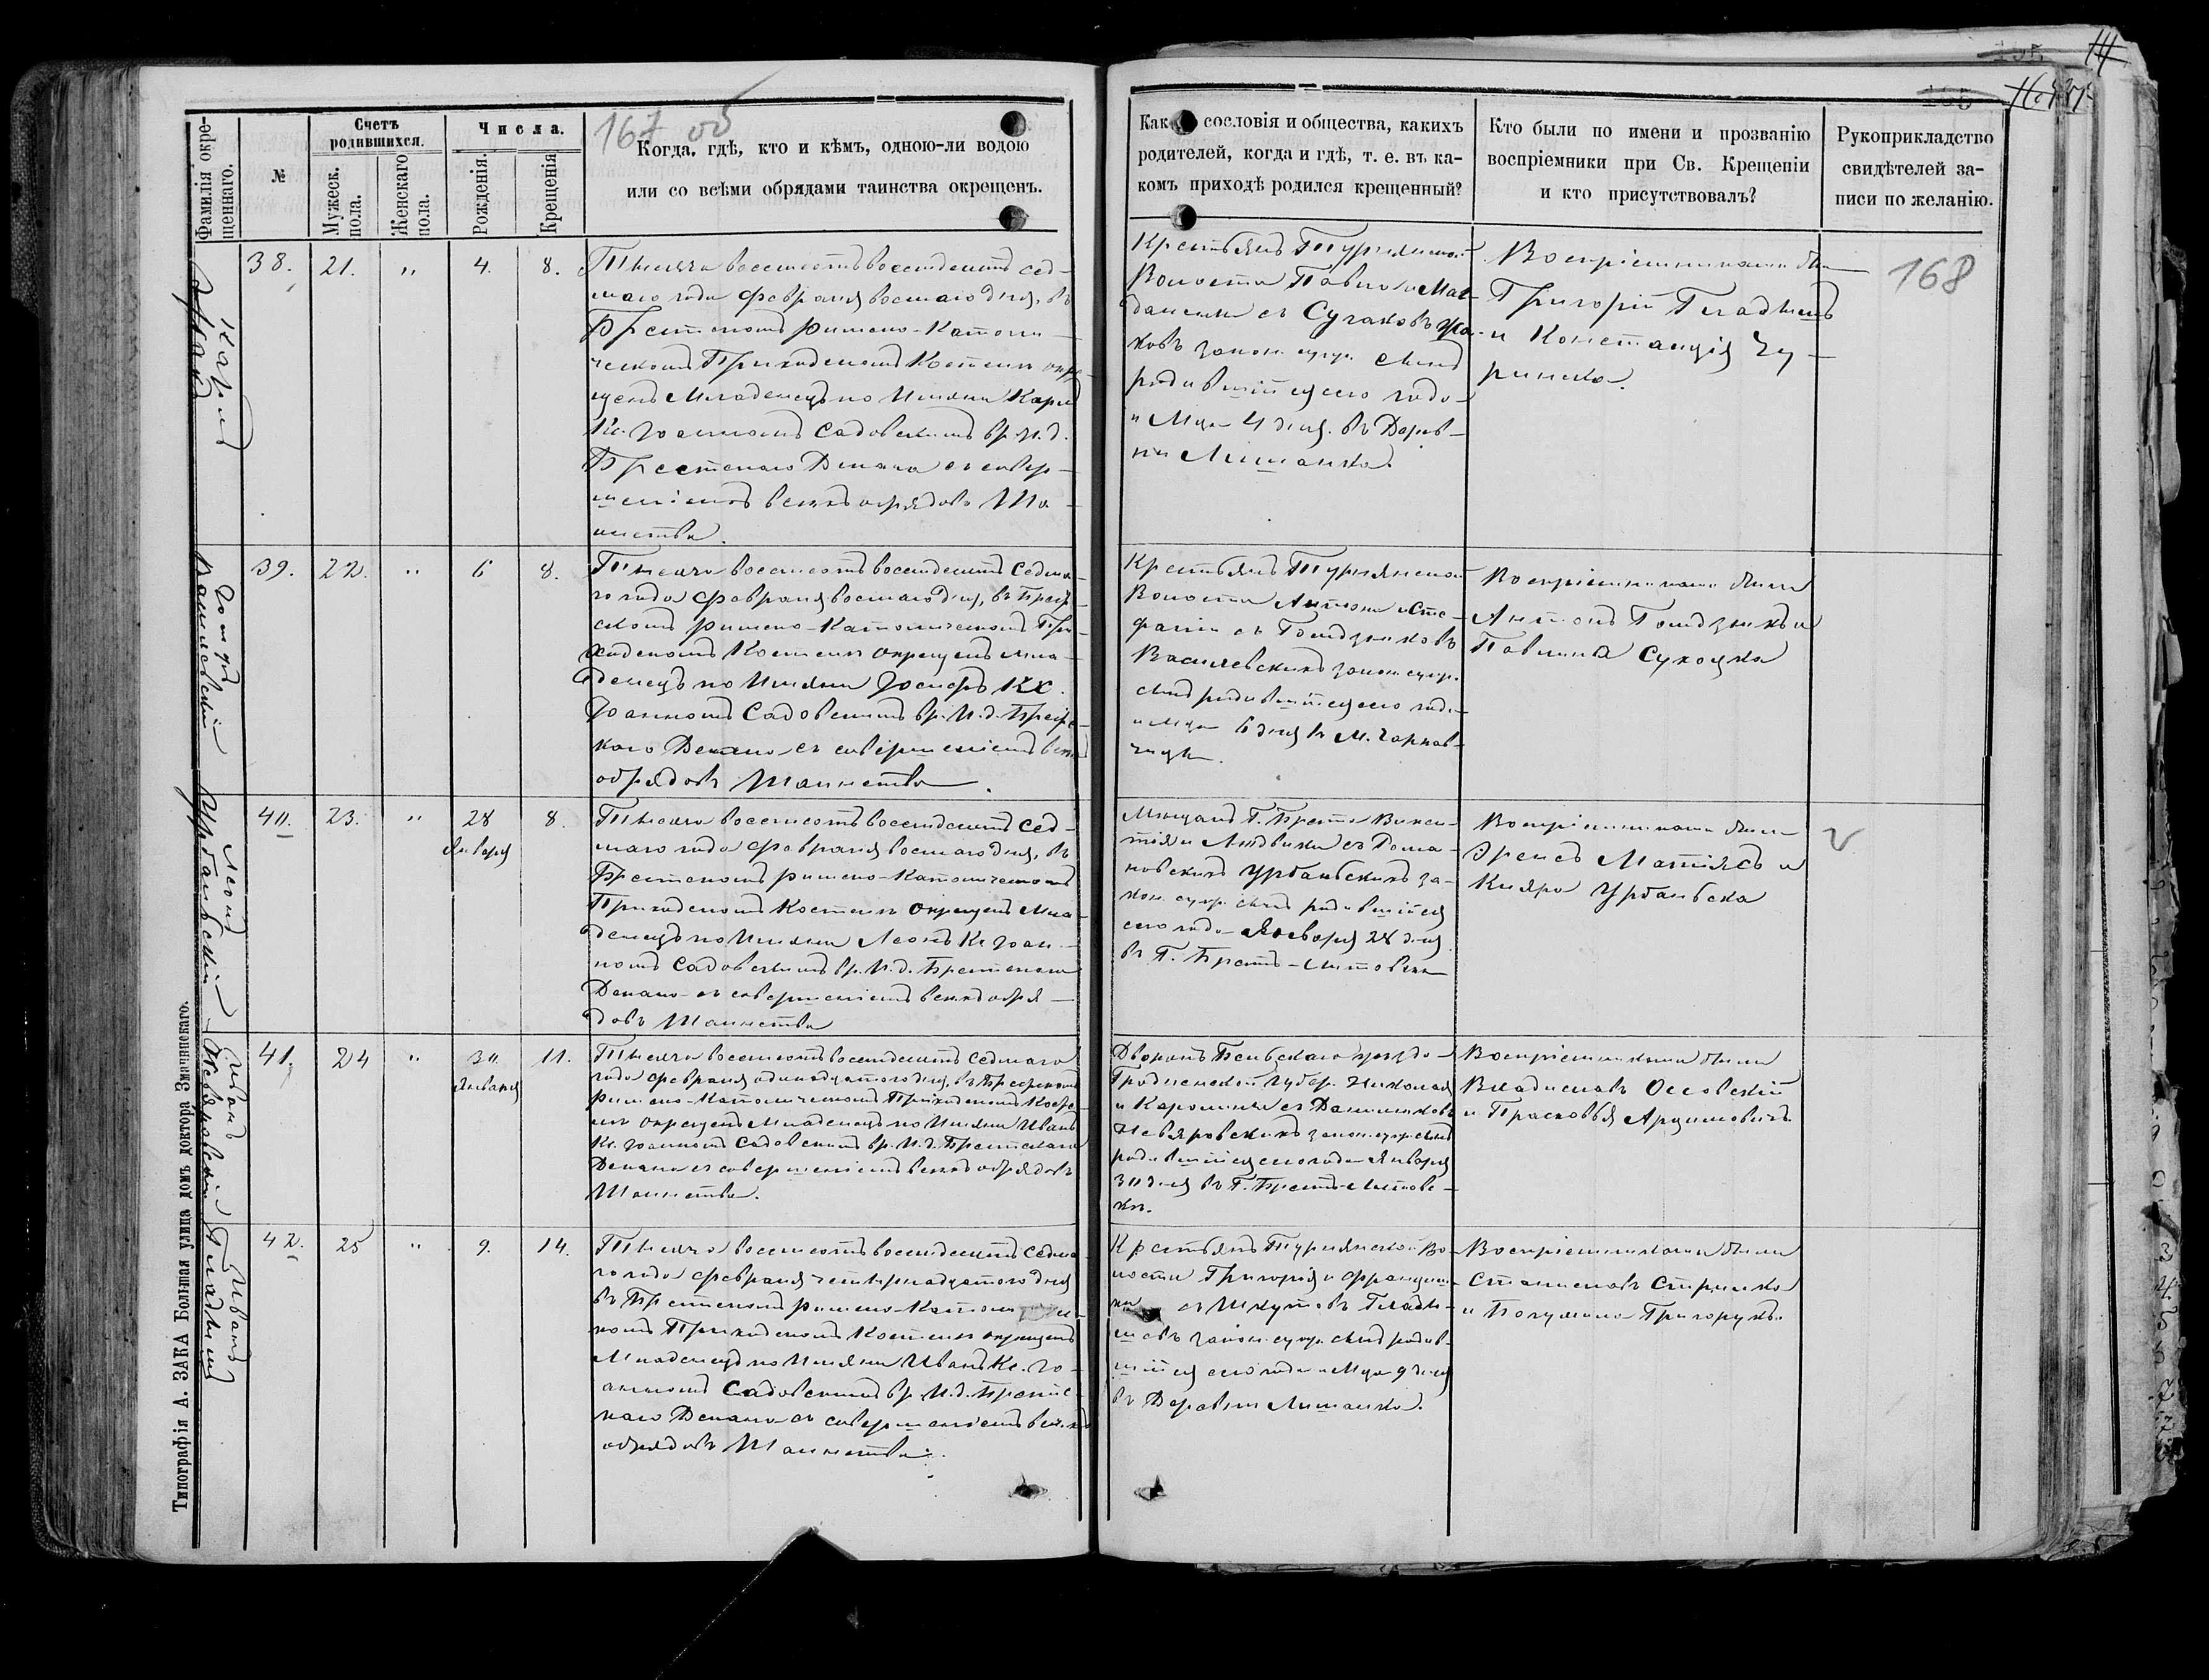 167 об
168
Фамилія окре-
щеннаго.
№
Счетъ
родившихся.
Мужеск.
пола.
Женскаго
пола.
Числа.
Рожденія.
Крещенія.
Когда, гдѣ, кто и кѣмъ, одною-ли водою
или со всѣми обрядами таинства окрещенъ.
Как сословія и общества, какихъ
родителей, когда и гдѣ, т. е. въ ка-
комъ приходѣ родился крещенный?
Кто были по имени и прозванію
воспріемники при Св. Крещеніи
и кто присутствовалъ?
Рукоприкладство
свидѣтелей за-
писи по желанію.
Карлъ
38. 21. " 4. 8.
Тысяча восемсотъ восемдесятъ сед-
маго года Февраля восмаго дня, въ
Брестскомъ Римско-Католи-
ческомъ Приходскомъ Костелѣ окре-
щенъ Младенецъ по Имяни Карлъ
Кс. Іоанномъ Садовскимъ вр. И. д.
Брестскаго Декана съ совер-
шеніемъ всѣхъ обрядовъ Та-
инства.
Крестьянъ Турнянской
Волости Павла и Маг-
далены съ Сучаковъ
ковъ закон. супр. Сынъ
родившійся сего года
и М-ца 4 дня. въ Дерев-
ни Лишанка.
Воспріемниками были
Григорій Гладышъ
и Констанція Чу-
рилко.
Іосифъ
Василевскій
39. 22. " 6 8.
Тысяча восемсотъ восемдесятъ Седма-
го года Февраля восмаго дня, въ Брест-
скомъ Римско-Католическомъ При-
ходскомъ Костелѣ Окрещенъ мла-
денецъ по Имяни Іосифъ Кс.
Іоанномъ Садовскимъ вр. И. д. Брест-
скаго Декана съ совершеніемъ всѣхъ
обрядовъ Таинства.
Крестьянъ Турнянской
Волости Антона и Сте-
фаніи съ Гомдзюковъ
Василевскихъ закон. супр.
сынъ родившійся сего года
и М-ца 6 дня въ М. Чернав-
чицы.
Воспріемниками были
Антонъ Гомдзюкъ и
Павлина Сухоцка
Леонъ
Урбанскій
40. 23. " 28 8.
Января
Тысяча восемсотъ восемдесятъ Сед-
маго года Февраля восмаго дня, въ
Брестскомъ Римско-Католическомъ
Приходскомъ Костелѣ Окрещенъ Мла-
денецъ по Имяни Леонъ Кс. Іоан-
номъ Садовскимъ вр. И. д. Брестскаго
Декана съ совершеніемъ всѣхъ обря-
довъ Таинства
Мещанъ Г. Бреста Викен-
тія и Людвики съ Рома-
новскихъ Урбанскихъ за-
кон. супр. сынъ родившійся
сего года Января 28 дня
въ Г. Брестъ-Литовскъ
Воспріемниками были
Эрнсъ Матіясъ и
Кляра Урбанска
Иванъ
Невяровскій
41. 24 " 30. 11.
Января
Тысяча восемсотъ восемдесятъ седмаго
года Февраля одинадцатаго дня, въ Брестскомъ
Римско-Католическомъ Приходскомъ Косте-
лѣ окрещенъ Младенецъ по Имяни Иванъ
Кс. Іоанномъ Садовскимъ вр. И. д. Брестскаго
Декана съ совершеніемъ всѣхъ обрядовъ
Таинства.
Дворянъ Бельскаго уѣзда
Гродненской Губер. Николая
и Каролины съ Данилюковъ
Невяровскихъ закон. супр. сынъ
родившійся сего года Января
30 дня въ Г. Брестъ-Литовс-
кѣ.
Воспріемниками были
Владиславъ Оссовскій
и Прасковья Арцимовичъ.
Иванъ
Гладышъ
42. 25 " 9. 14.
Тысяча восемсотъ восемдесятъ седма-
го года Февраля четырнадцатаго дня
въ Брестскомъ Римско-Католическ-
комъ Приходскомъ Костелѣ окрещенъ
Младенецъ по Имяни Иванъ Кс. Іо-
анномъ Садовскимъ вр. И. д. Брестс-
каго Декана съ совершеніемъ всѣхъ
обрядовъ Таинства.
Крестьянъ Турнянской Во-
лости Григорія и Францишки
съ Шкутовъ Глады-
шевъ закон. супр. сынъ родив-
шійся сего года и М-ца 9 дня
въ Деревни Лишанка.
Воспріемниками были
Станиславъ Стрилко
и Богумила Григорукъ.
Типографія А. ЗАКА Большая улица домъ доктора Змачинскаго.